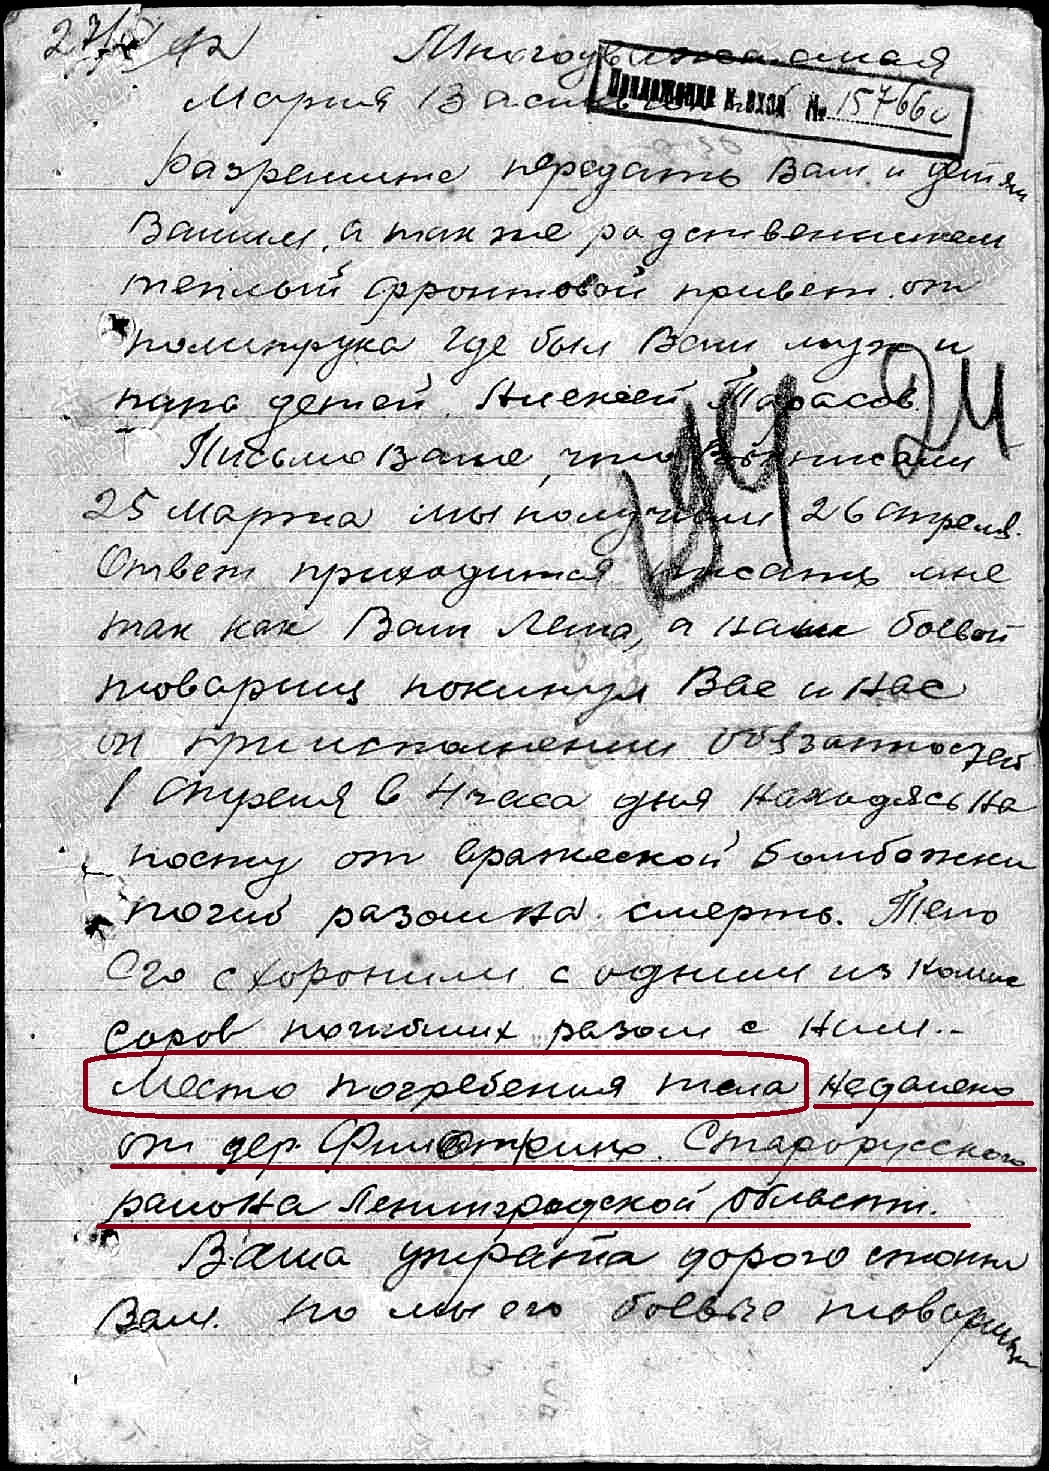 27/ 42 Многоуважаемая
Мария Васильевна
Приложение к вход № 15766с
разрешите передать Вам и детям
Вашим, а так же радственникам
теплый фронтовой привет от
политрука где был Ваш муж и
папа детей Алексей Тарасов.
24
Письмо Ваше, что Вы писали
25 марта мы получили 26 апреля.
Ответ приходится писать мне
так как Ваш Леша, а наш боевой
товарищ покинул Вас и нас
он при исполнении обязанностей
1 апреля в 4 часа дня находясь на
посту от вражеской бомбёжки
погиб разом на смерть. Тело
Его схоронили с одним из комис
саров погибших разом с ним..
Место погребения тела недалеко
от дер. Старорусского
района Ленинградской области.
Ваша утрата дорого стоит
Вам. но мы его боевые товарищи